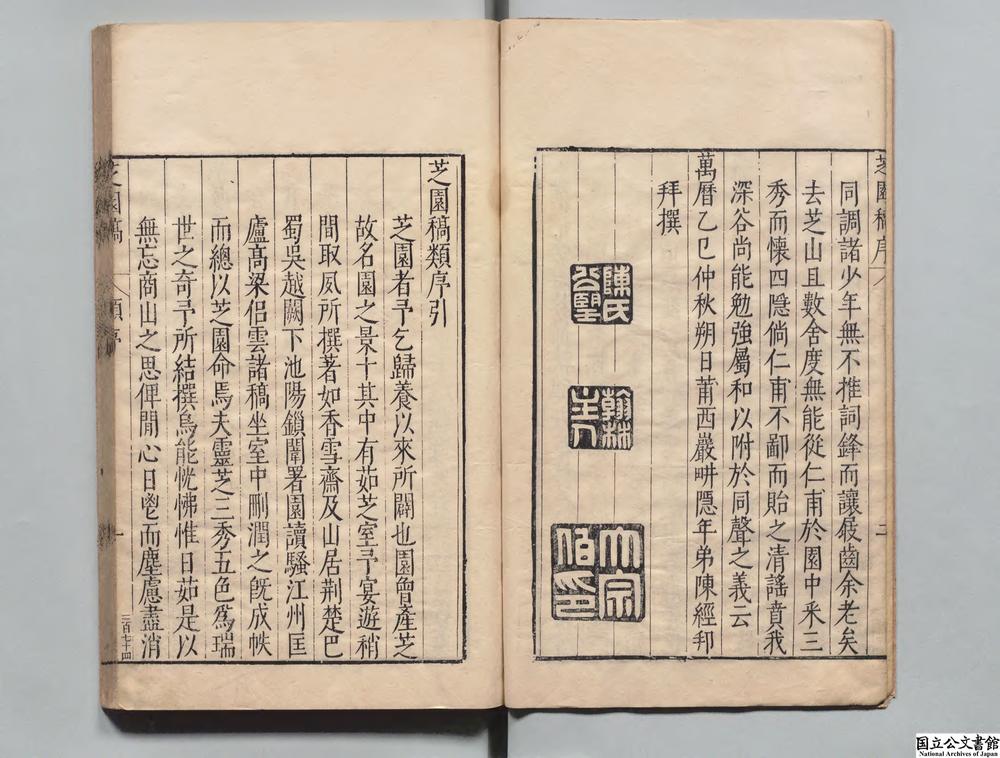 芝園稿序
同調諸少年無不推詞鋒而讓屐齒余老矣
去芝山且數舍度無能從仁甫於園中釆三
秀而懷四隠倘仁甫不鄙而貽之清謠賁我
深谷尚能勉強屬和以附於同聲之義云
萬曆乙巳仲秋朔日莆西巖畊隠年弟陳經邦
拜撰
陳氏
公望
翰林
主人
大宗
伯印
二
芝園稿類序引
芝園者予乞歸養以來所闢也園曽產芝
故名園之景十其中有茹芝室予宴遊稍
間取夙所撰著如香雪齋及山居荆楚巴
蜀吳越闕下池陽鎖闈署園讀騷江州匡
廬髙梁侣雲諸稿坐室中刪潤之旣成帙
而總以芝園命焉夫靈芝三秀五色爲瑞
世之奇予所結撰烏能恍彿惟日茹是以
無忘商山之思俾閒心日鬯而塵慮盡消
芝園稿
類序
一
三百七十四
国立公文書館
National Archives of Japan